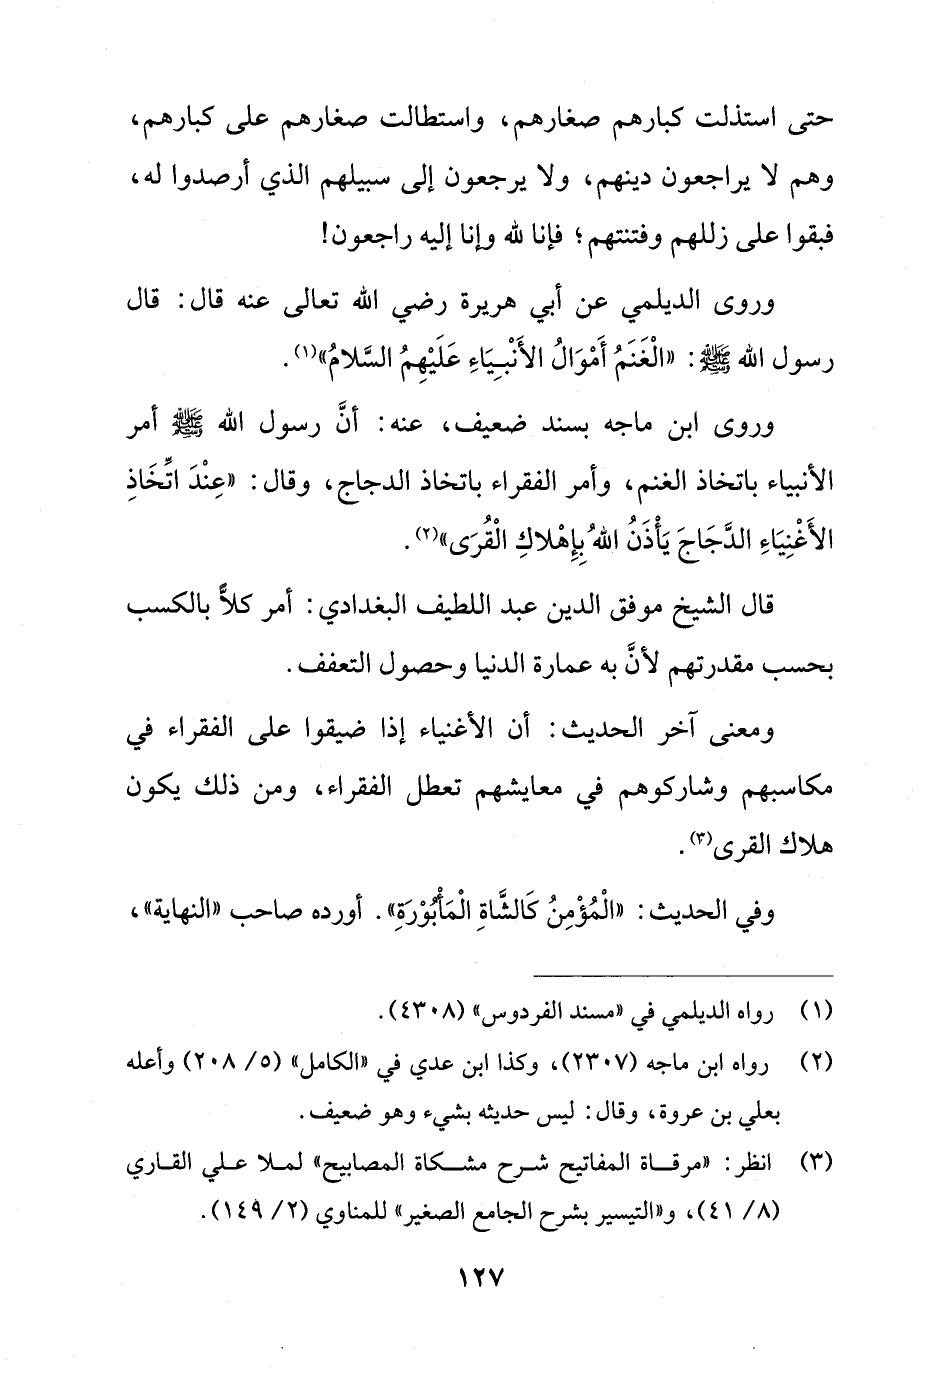 حتى استذلت كبارهم صغارهم، واستطالت صغارهم على كبارهم،
وهم لا يراجعون دينهم، ولا يرجعون إلى سبيلهم الذي أرصدوا له،
فبقوا على زللهم وفتنتهم؛ فإنا لله وإنا إليه راجعون!
وروى الديلمي عن أبي هريرة رضي الله تعالى عنه قال: قال
رسول الله ﷺ: «الْغَنَمُ أَمْوَالُ الأَنْبِيَاءِ عَلَيْهِمُ السَّلامُ»(١).
وروى ابن ماجه بسند ضعيف، عنه: أنَّ رسول الله ﷺ أمر
الأنبياء باتخاذ الغنم، وأمر الفقراء باتخاذ الدجاج، وقال: «عِنْدَ اتِّخَاذِ
الأَغْنِيَاءِ الدَّجَاجَ يَأْذَنُ اللهُ بِإِهْلاكِ الْقُرَى»(٢).
قال الشيخ موفق الدين عبد اللطيف البغدادي: أمر كلاًّ بالكسب
بحسب مقدرتهم لأنَّ به عمارة الدنيا وحصول التعفف.
ومعنى آخر الحديث: أن الأغنياء إذا ضيقوا على الفقراء في
مكاسبهم وشاركوهم في معايشهم تعطل الفقراء، ومن ذلك يكون
هلاك القرى(٣).
وفي الحديث: «الْمُؤْمِنُ كَالشَّاةِ الْمَأْبُوْرَةِ». أورده صاحب «النهاية»،
(١) رواه الديلمي في «مسند الفردوس» (٤٣٠٨).
(٢) رواه ابن ماجه (٢٣٠٧)، وكذا ابن عدي في «الكامل» (٥/ ٢٠٨) وأعله
بعلي بن عروة، وقال: ليس حديثه بشيء وهو ضعيف.
(٣) انظر: «مرقاة المفاتيح شرح مشكاة المصابيح» لملا علي القاري
(٨/ ٤١)، و«التيسير بشرح الجامع الصغير» للمناوي (٢/ ١٤٩).
١٢٧